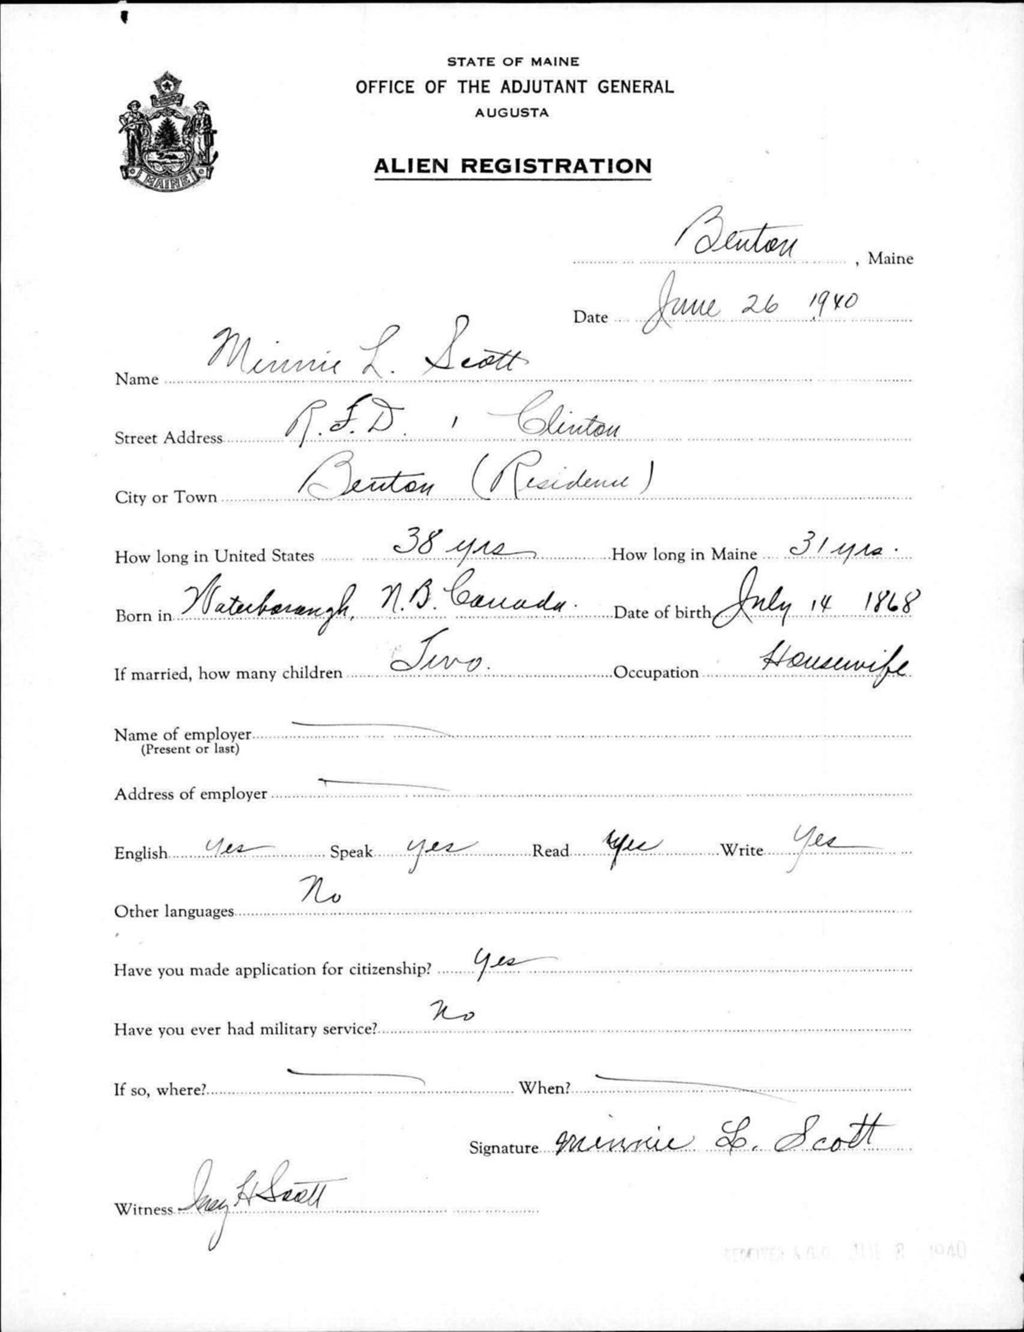 STATE OF MAINE
OFFICE OF THE ADJUTANT GENERAL
AUGUSTA
ALIEN REGISTRATION
MAINE
Benton, Maine
Date June 26 1940
Name Minnie L. Scott
Street Address R.F.D. 1 Clinton
City or Town Benton (Residence)
How long in United States 38 yrs How long in Maine 31 yrs.
Born in Waterborough, N.B. Canada. Date of birth July 14 1868
If married, how many children Two. Occupation Housewife
Name of employer
(Present or last)
Address of employer
English Yes Speak yes Read Yes Write Yes
Other languages No
Have you made application for citizenship? Yes
Have you ever had military service? No
If so, where? When?
Signature Minnie L. Scott
Witness H Scott
1940